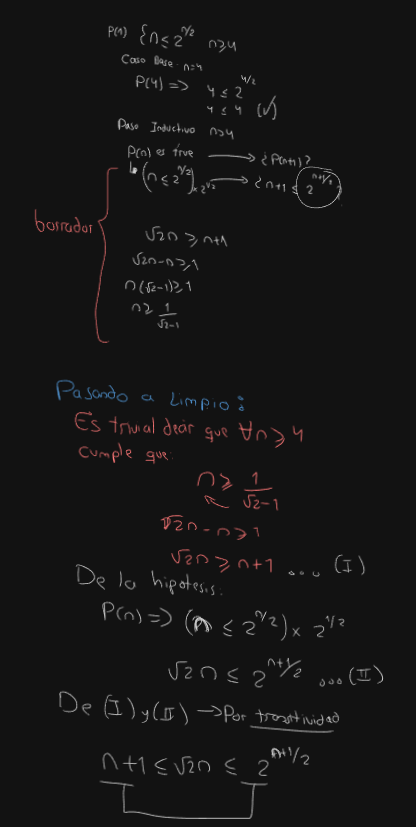 P(n) { n ≤ 2^{n/2} n≥4
Caso Base: n=4
P(4) => 4 ≤ 2^{4/2}
4 ≤ 4 (✓)
Paso Inductivo n≥4
P(n) es true → ¿P(n+1)?
↳ (n ≤ 2^{n/2}) × 2^{1/2} → ¿ n+1 ≤ 2^{n+1/2} ?
borrador
√2n ≥ n+1
√2n - n ≥ 1
n(√2-1) ≥ 1
n ≥ 1/(√2-1)
Pasando a Limpio:
Es trivial decir que ∀n ≥ 4
cumple que:
n ≥ 1/(√2-1)
√2n - n ≥ 1
√2n ≥ n+1 ... (I)
De la hipotesis:
P(n) => (n ≤ 2^{n/2}) × 2^{1/2}
√2 n ≤ 2^{n+1/2} ... (II)
De (I) y (II) → Por transitividad
n+1 ≤ √2n ≤ 2^{n+1/2}